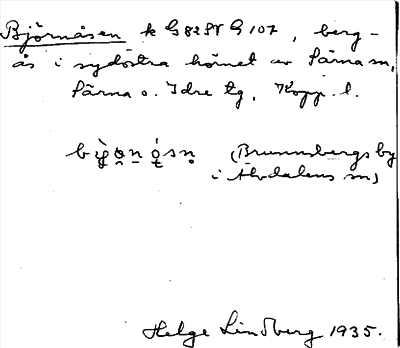 Björnåsen k G 82 SV G 107, berg-
ås i sydöstra hörnet av Särna sn,
Särna o. Idre tg, Kopp. l.
(Brunnsbergs by
i Älvdalens sn)
Helge Lindberg 1935.